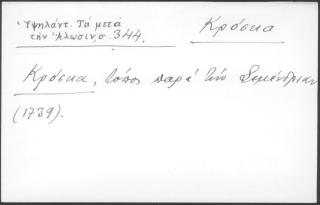 Ὑψηλάντ. Τά μετά
τήν Ἅλωσιν, σ. 344.
Κρόσκα
Κρόσκα, τόπος παρά τήν Σεμένδριαν
(1739).